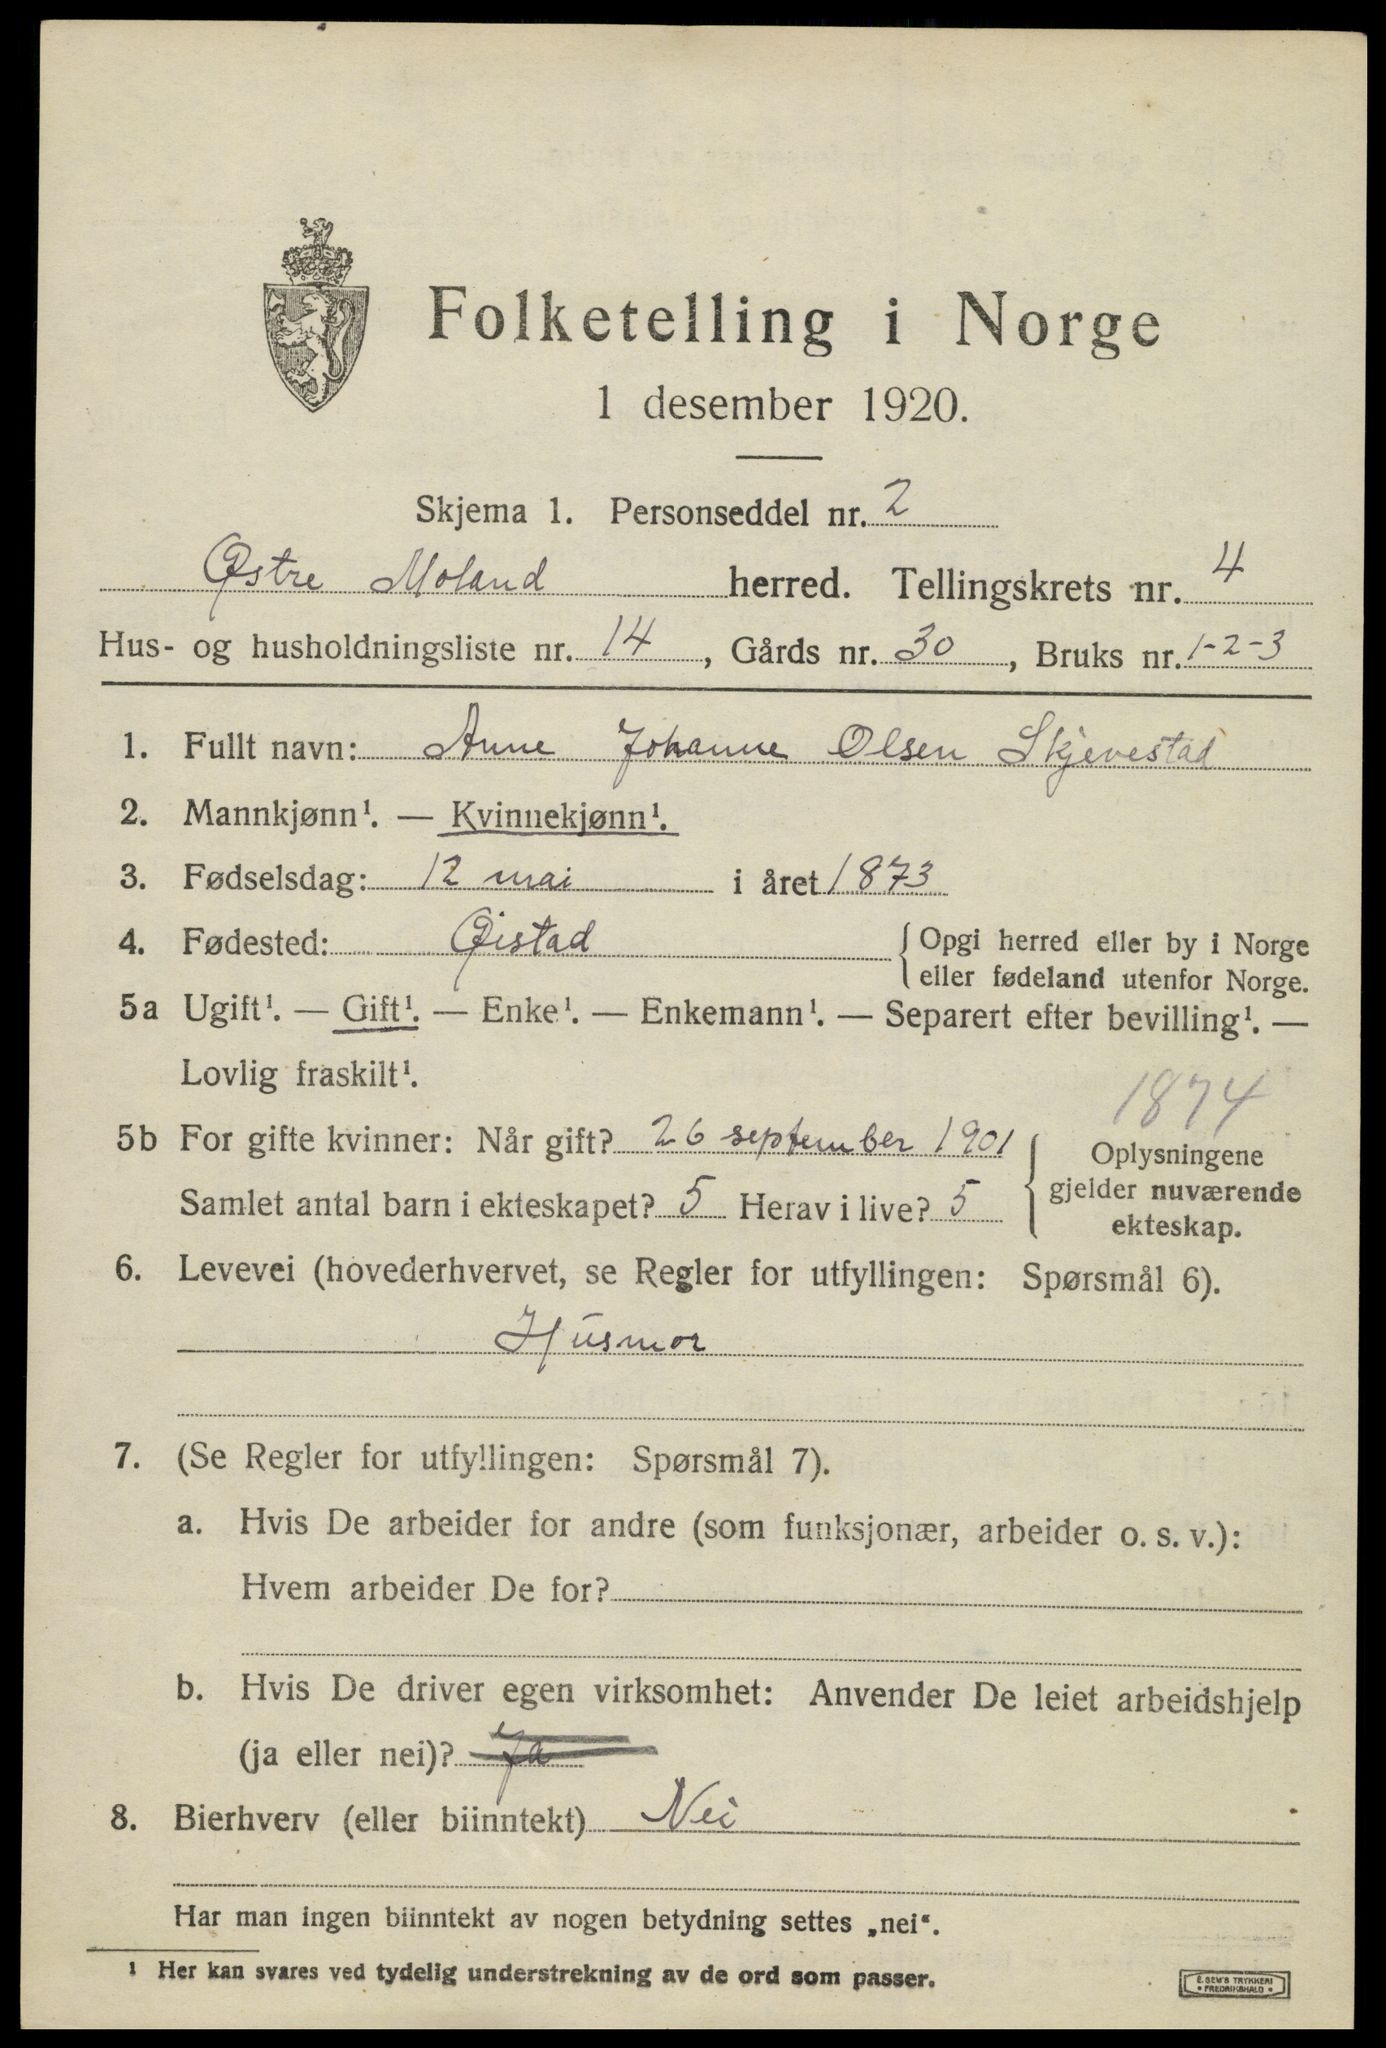 Folketelling i Norge
1 desember 1920.
Skjema 1. Personseddel nr. 2
Østre Moland herred. Tellingskrets nr. 4
Hus- og husholdningsliste nr. 14, Gårds nr. 30, Bruks nr. 1-2-3
1. Fullt navn: Anne Johanne Olsen Skjevestad
2. Mannkjønn¹. — Kvinnekjønn¹.
3. Fødselsdag: 12 mai i året 1873
4. Fødested: Øistad { Opgi herred eller by i Norge
eller fødeland utenfor Norge.
5a Ugift¹. — Gift¹. — Enke¹. — Enkemann¹. — Separert efter bevilling¹. —
Lovlig fraskilt¹.
1874
5b For gifte kvinner: Når gift? 26 september 1901
Samlet antal barn i ekteskapet? 5 Herav i live? 5
Oplysningene
gjelder nuværende
ekteskap.
6. Levevei (hovederhvervet, se Regler for utfyllingen: Spørsmål 6).
Husmor
7. (Se Regler for utfyllingen: Spørsmål 7).
a. Hvis De arbeider for andre (som funksjonær, arbeider o. s. v.):
Hvem arbeider De for?
b. Hvis De driver egen virksomhet: Anvender De leiet arbeidshjelp
(ja eller nei)? Ja
8. Bierhverv (eller biinntekt) Nei
Har man ingen biinntekt av nogen betydning settes „nei“.
¹ Her kan svares ved tydelig understrekning av de ord som passer.
E. SEM'S TRYKKERI
• FREDRIKSHALD •